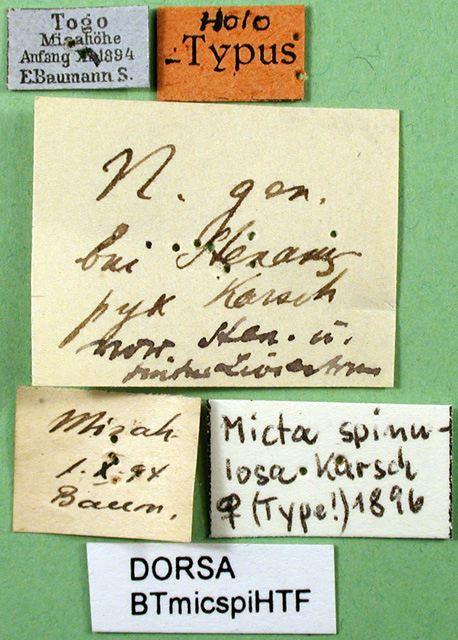 Togo
Misahöhe
Anfang 1894
E.Baumann S.
Holo
Typus
N. gen.
bei
Karsch
nov.
Misah.
1.X.94
Baum.
Micta spinu-
losa. Karsch
♀ (Type!) 1896
DORSA
BTmicspiHTF